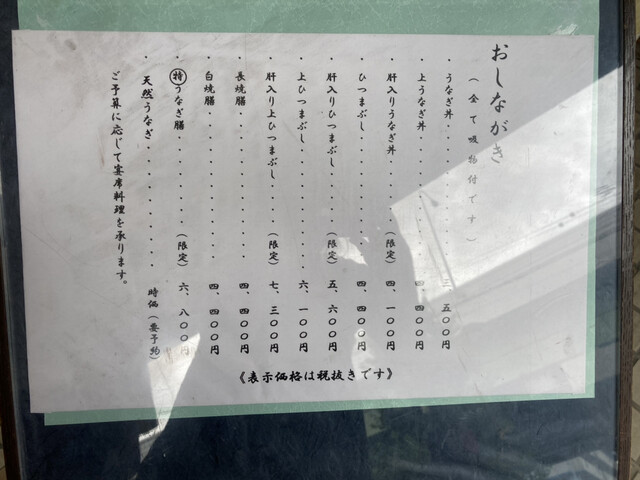 おしながき
（全て吸物付です）
・うなぎ丼・・・・・・・・・・・・三、五〇〇円
・上うなぎ丼・・・・・・・・・・・四、四〇〇円
・肝入りうなぎ丼・・・・・・（限定）四、一〇〇円
・ひつまぶし・・・・・・・・・・・四、四〇〇円
・肝入りひつまぶし・・・・・（限定）五、六〇〇円
・上ひつまぶし・・・・・・・・・・六、一〇〇円
・肝入り上ひつまぶし・・・・（限定）七、三〇〇円
・長焼膳・・・・・・・・・・・・・四、四〇〇円
・白焼膳・・・・・・・・・・・・・四、四〇〇円
・㊕うなぎ膳・・・・・・・・（限定）六、八〇〇円
・天然うなぎ・・・・・・・・・・・時価（要予約）
ご予算に応じて宴席料理を承ります。
《表示価格は税抜きです》